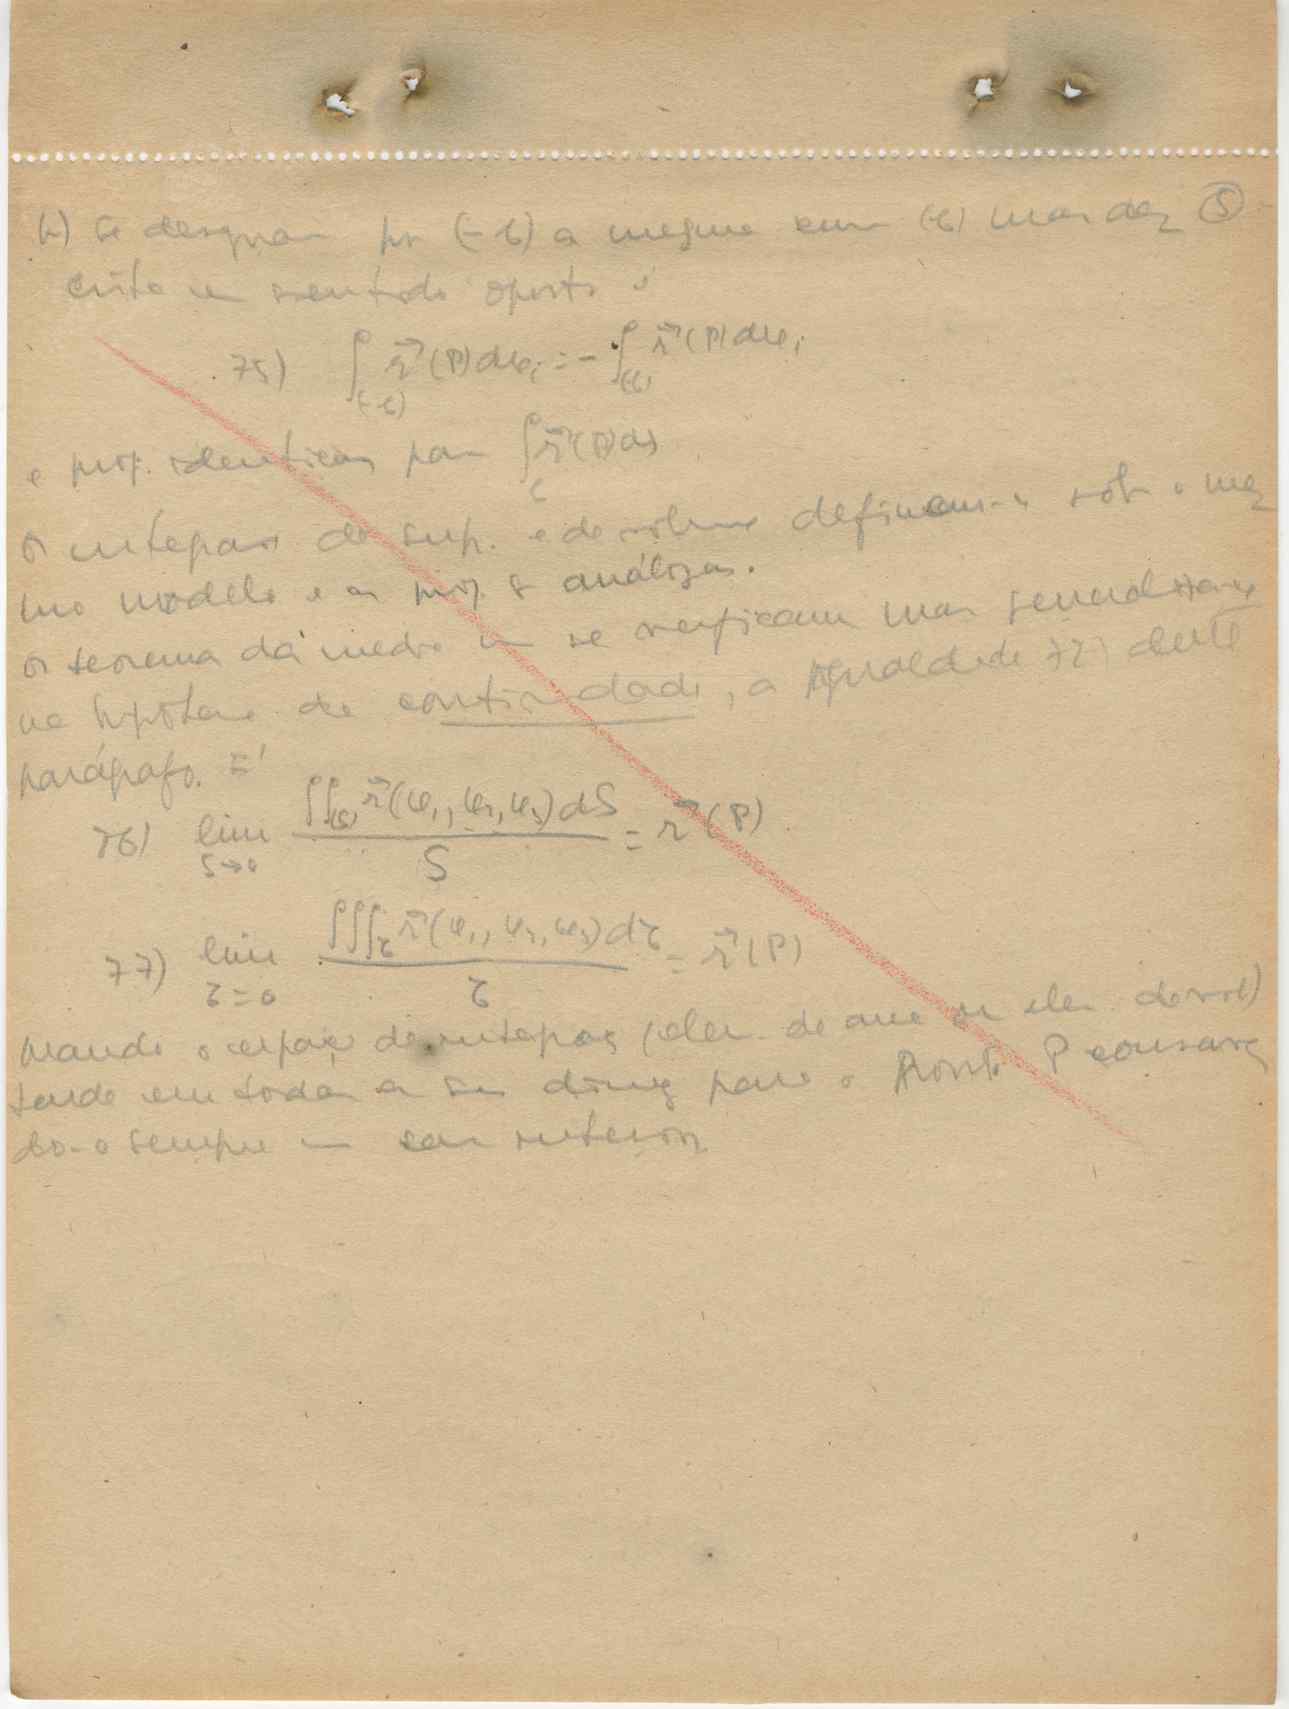 h) se designar por (-c) a mesma curva (c) mas des ⑤
crita em sentido oposto é
75) ∫(-c) r⃗(P)dφi = - ∫(c) r⃗(P)dφi
e prop. identicas para ∫c r⃗(P)ds
os integrais de sup. e de volume definem-se sob o mes
mo modelo e as prop. s análogas.
os teorema da media se verificam mas generaliza-se
na hipótese de continuidade, a igualdade 72) deste
parágrafo. É
76) lim S→0 ∫∫(S) r⃗(φ1, φ2, φ3) dS / S = r⃗(P)
77) lim τ=0 ∫∫∫τ r⃗(φ1, φ2, φ3) dτ / τ = r⃗(P)
quando o espaço de integraç (elem. de area ou elem. de vol)
tende em todas as sus dims para o ponto P conservan
do-o sempre no seu interior